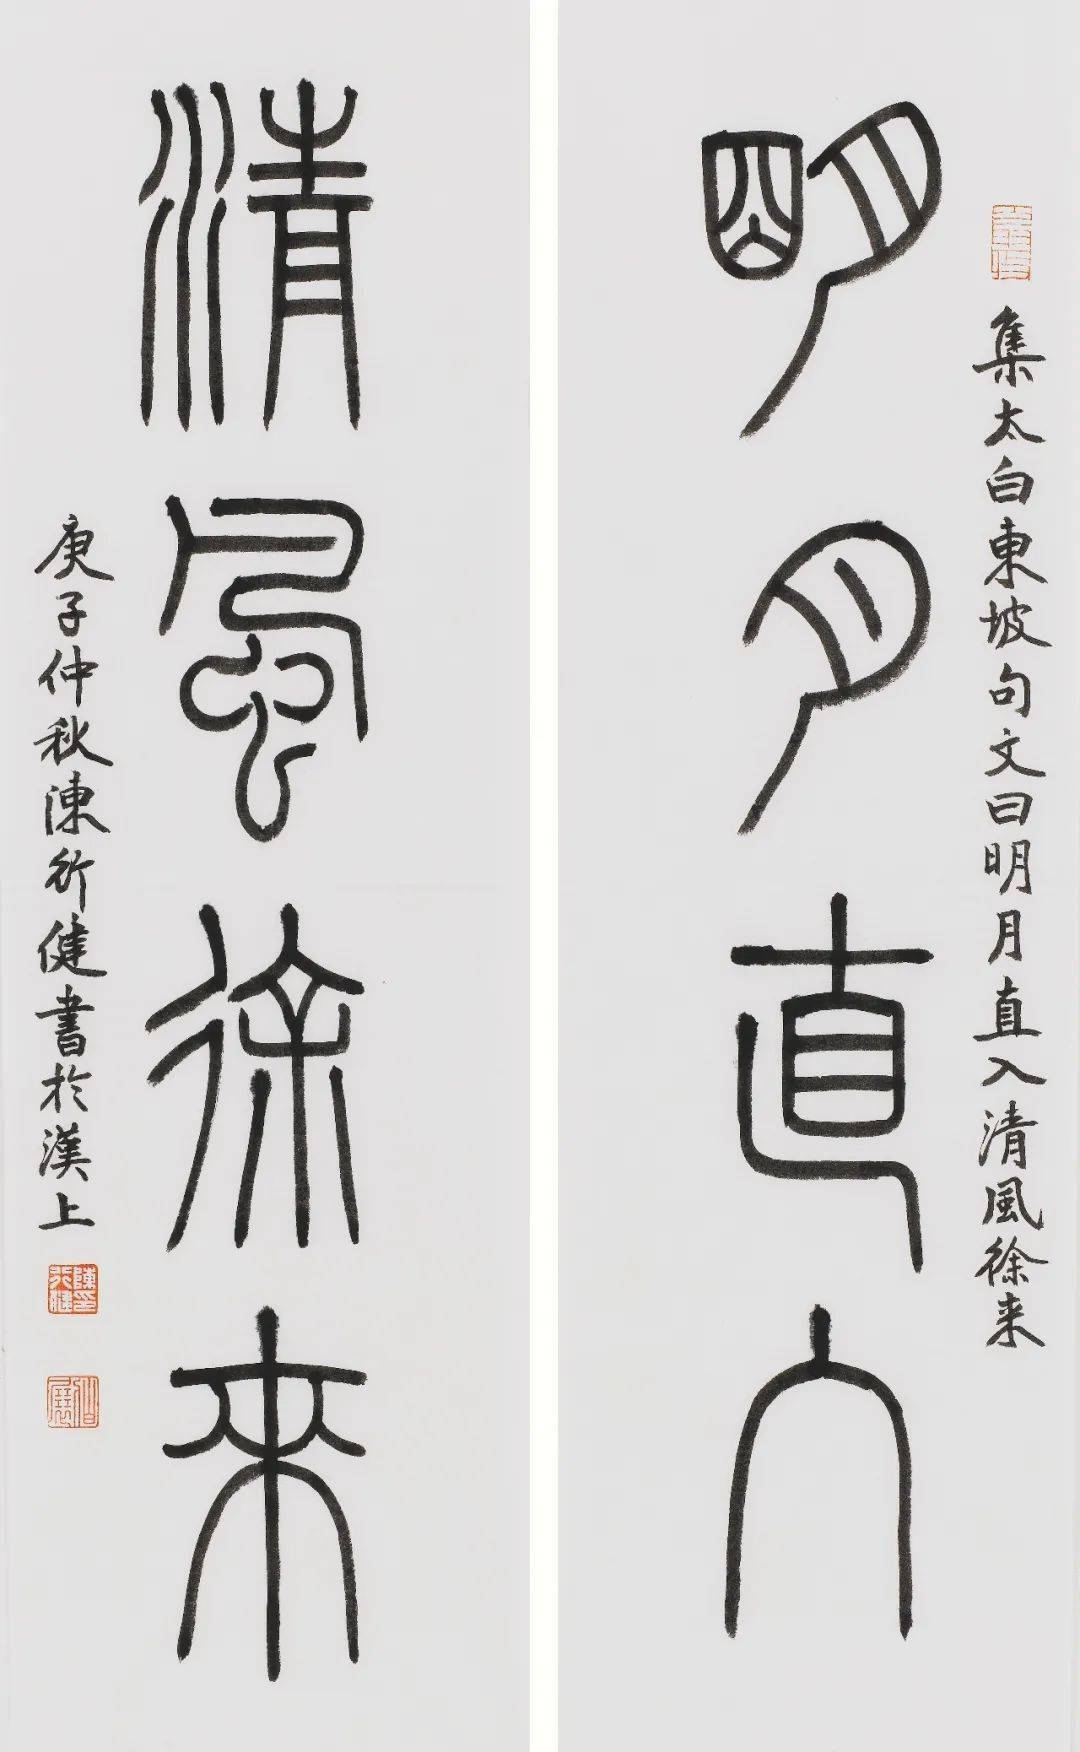 明月直入
集太白東坡句文曰明月直入清風徐来
清風徐來
庚子仲秋陳行健書於漢上